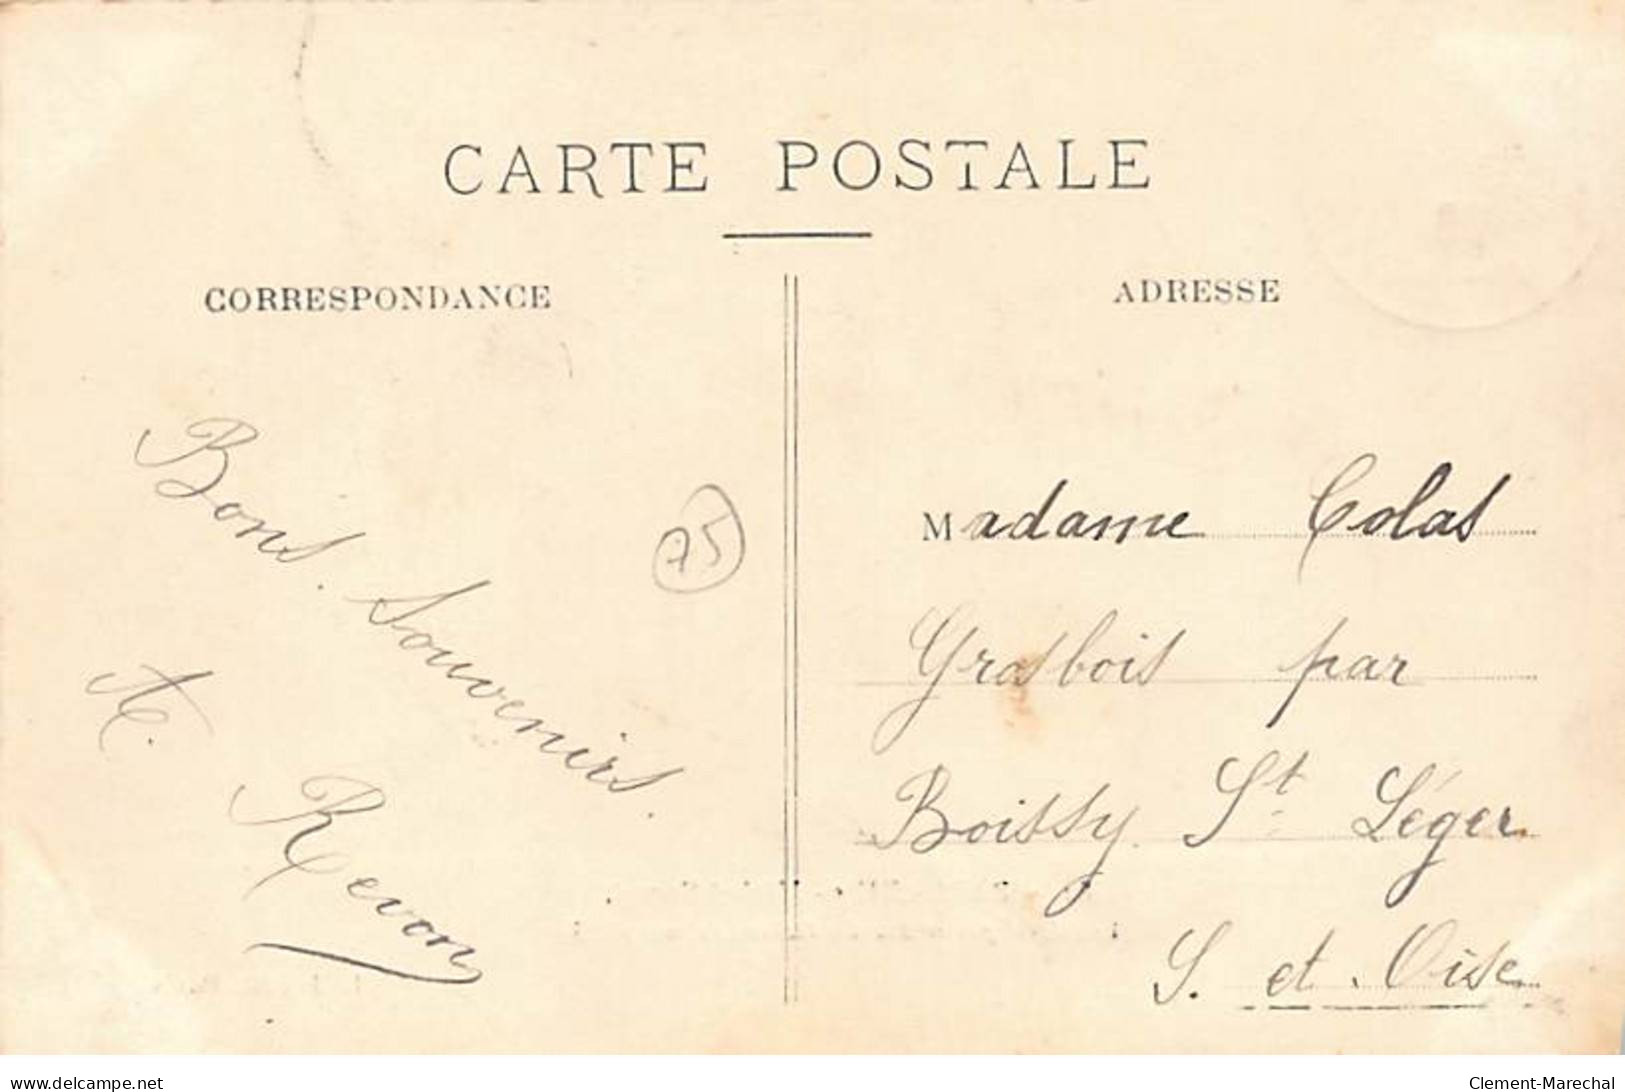 CARTE POSTALE
CORRESPONDANCE
Bons. Souvenirs.
A. Revon
75
ADRESSE
Madame Colas
Grosbois par
Boissy St Léger
S. et. Oise
www.delcampe.net
Clement-Marechal